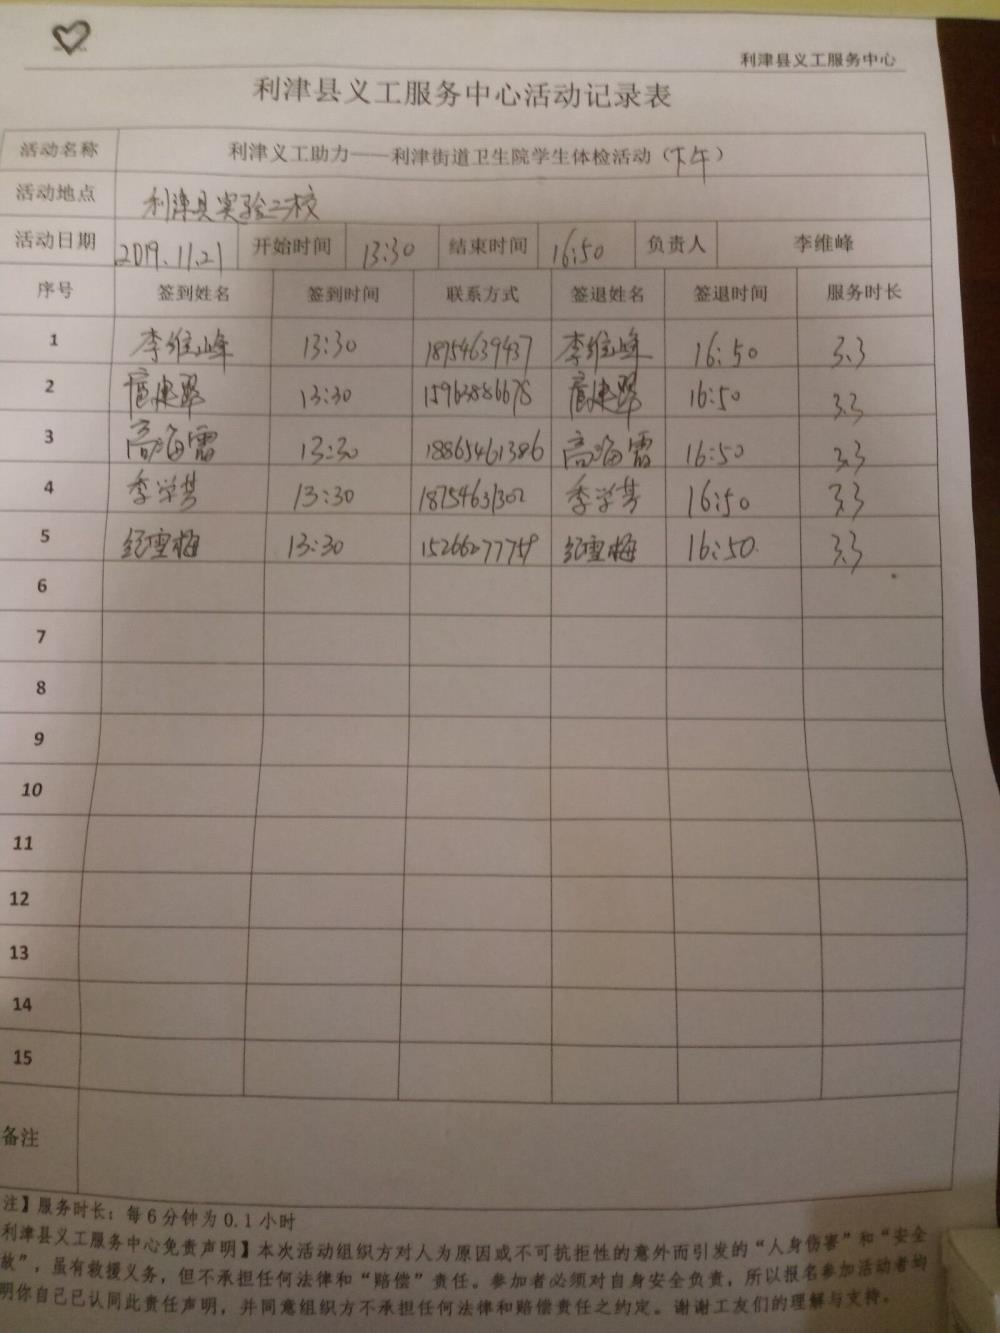 利津县义工服务中心
利津县义工服务中心活动记录表
活动名称 利津义工助力——利津街道卫生院学生体检活动（下午）
活动地点 利津县实验二校
活动日期 2019.11.21 开始时间 13:30 结束时间 16:50 负责人 李维峰
序号 签到姓名 签到时间 联系方式 签退姓名 签退时间 服务时长
1 李维峰 13:30 18754639437 李维峰 16:50 3.3
2 13:30 15963886678 16:50 3.3
3 高海雷 13:30 18865461386 高海雷 16:50 3.3
4 季学芳 13:30 18754631302 季学芳 16:50 3.3
5 纪雪梅 13:30 15266277759 纪雪梅 16:50 3.3
6
7
8
9
10
11
12
13
14
15
备注
注】服务时长：每6分钟为0.1小时
利津县义工服务中心免责声明】本次活动组织方对人为原因或不可抗拒性的意外而引发的“人身伤害”和“安全
故”，虽有救援义务，但不承担任何法律和“赔偿”责任。参加者必须对自身安全负责，所以报名参加活动者均
明你自己已认同此责任声明，并同意组织方不承担任何法律和赔偿责任之约定。谢谢工友们的理解与支持。